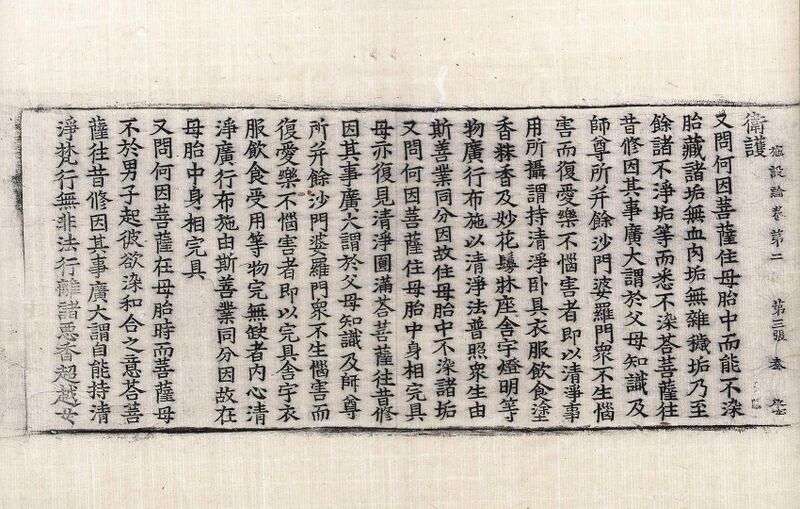 施設論卷第二 第三張
衛護
又問何因菩薩住母胎中而能不染
胎藏諸垢無血肉垢無雜穢垢乃至
餘諸不淨垢等而悉不染荅菩薩往
昔修因其事廣大謂於父母知識及
師尊所并餘沙門婆羅門衆不生惱
害而復愛樂不惱害者即以清淨事
用所攝謂持清淨卧具衣服飲食塗
香秣香及妙花鬘牀座舍宇燈明等
物廣行布施以清淨法普照衆生由
斯善業同分因故住母胎中不染諸垢
又問何因菩薩住母胎中身相完具
母亦復見清淨圓滿荅菩薩往昔修
因其事廣大謂於父母知識及師尊
所并餘沙門婆羅門衆不生惱害而
復愛樂不惱害者即以完具舍宇衣
服飲食受用等物完無缺者内心清
淨廣行布施由斯善業同分因故在
母胎中身相完具
又問何因菩薩在母胎時而菩薩母
不於男子起彼欲染和合之意荅菩
薩往昔修因其事廣大謂自能持清
淨梵行無非法行離諸惡香超越女